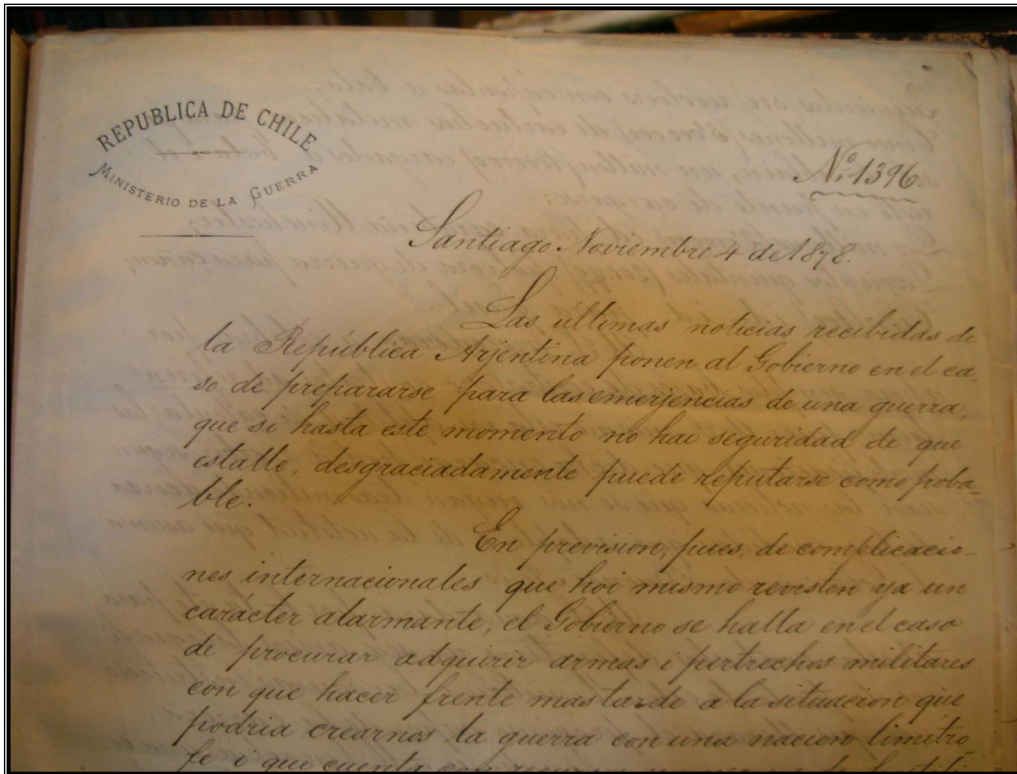 REPUBLICA DE CHILE
MINISTERIO DE LA GUERRA
Nº 1396.
Santiago Noviembre 4 de 1878.
Las últimas noticias recibidas de
la República Arjentina ponen al Gobierno en el ca-
so de prepararse para las emerjencias de una guerra,
que si hasta este momento no hai seguridad de que
estalle, desgraciadamente puede reputarse como proba-
ble.
En prevision, pues, de complicacio-
nes internacionales que hoi mismo revisten ya un
carácter alarmante, el Gobierno se halla en el caso
de procurar adquirir armas i pertrechos militares
con que hacer frente mas tarde a la situacion que
podria crearnos la guerra con una nacion limítro-
fe i que cuenta con